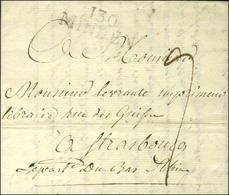 130
MINDEN
A Monsieur
Monsieur Levrault imprimeur
libraire rue des
à Strasbourg
Départ du Bas Rhin